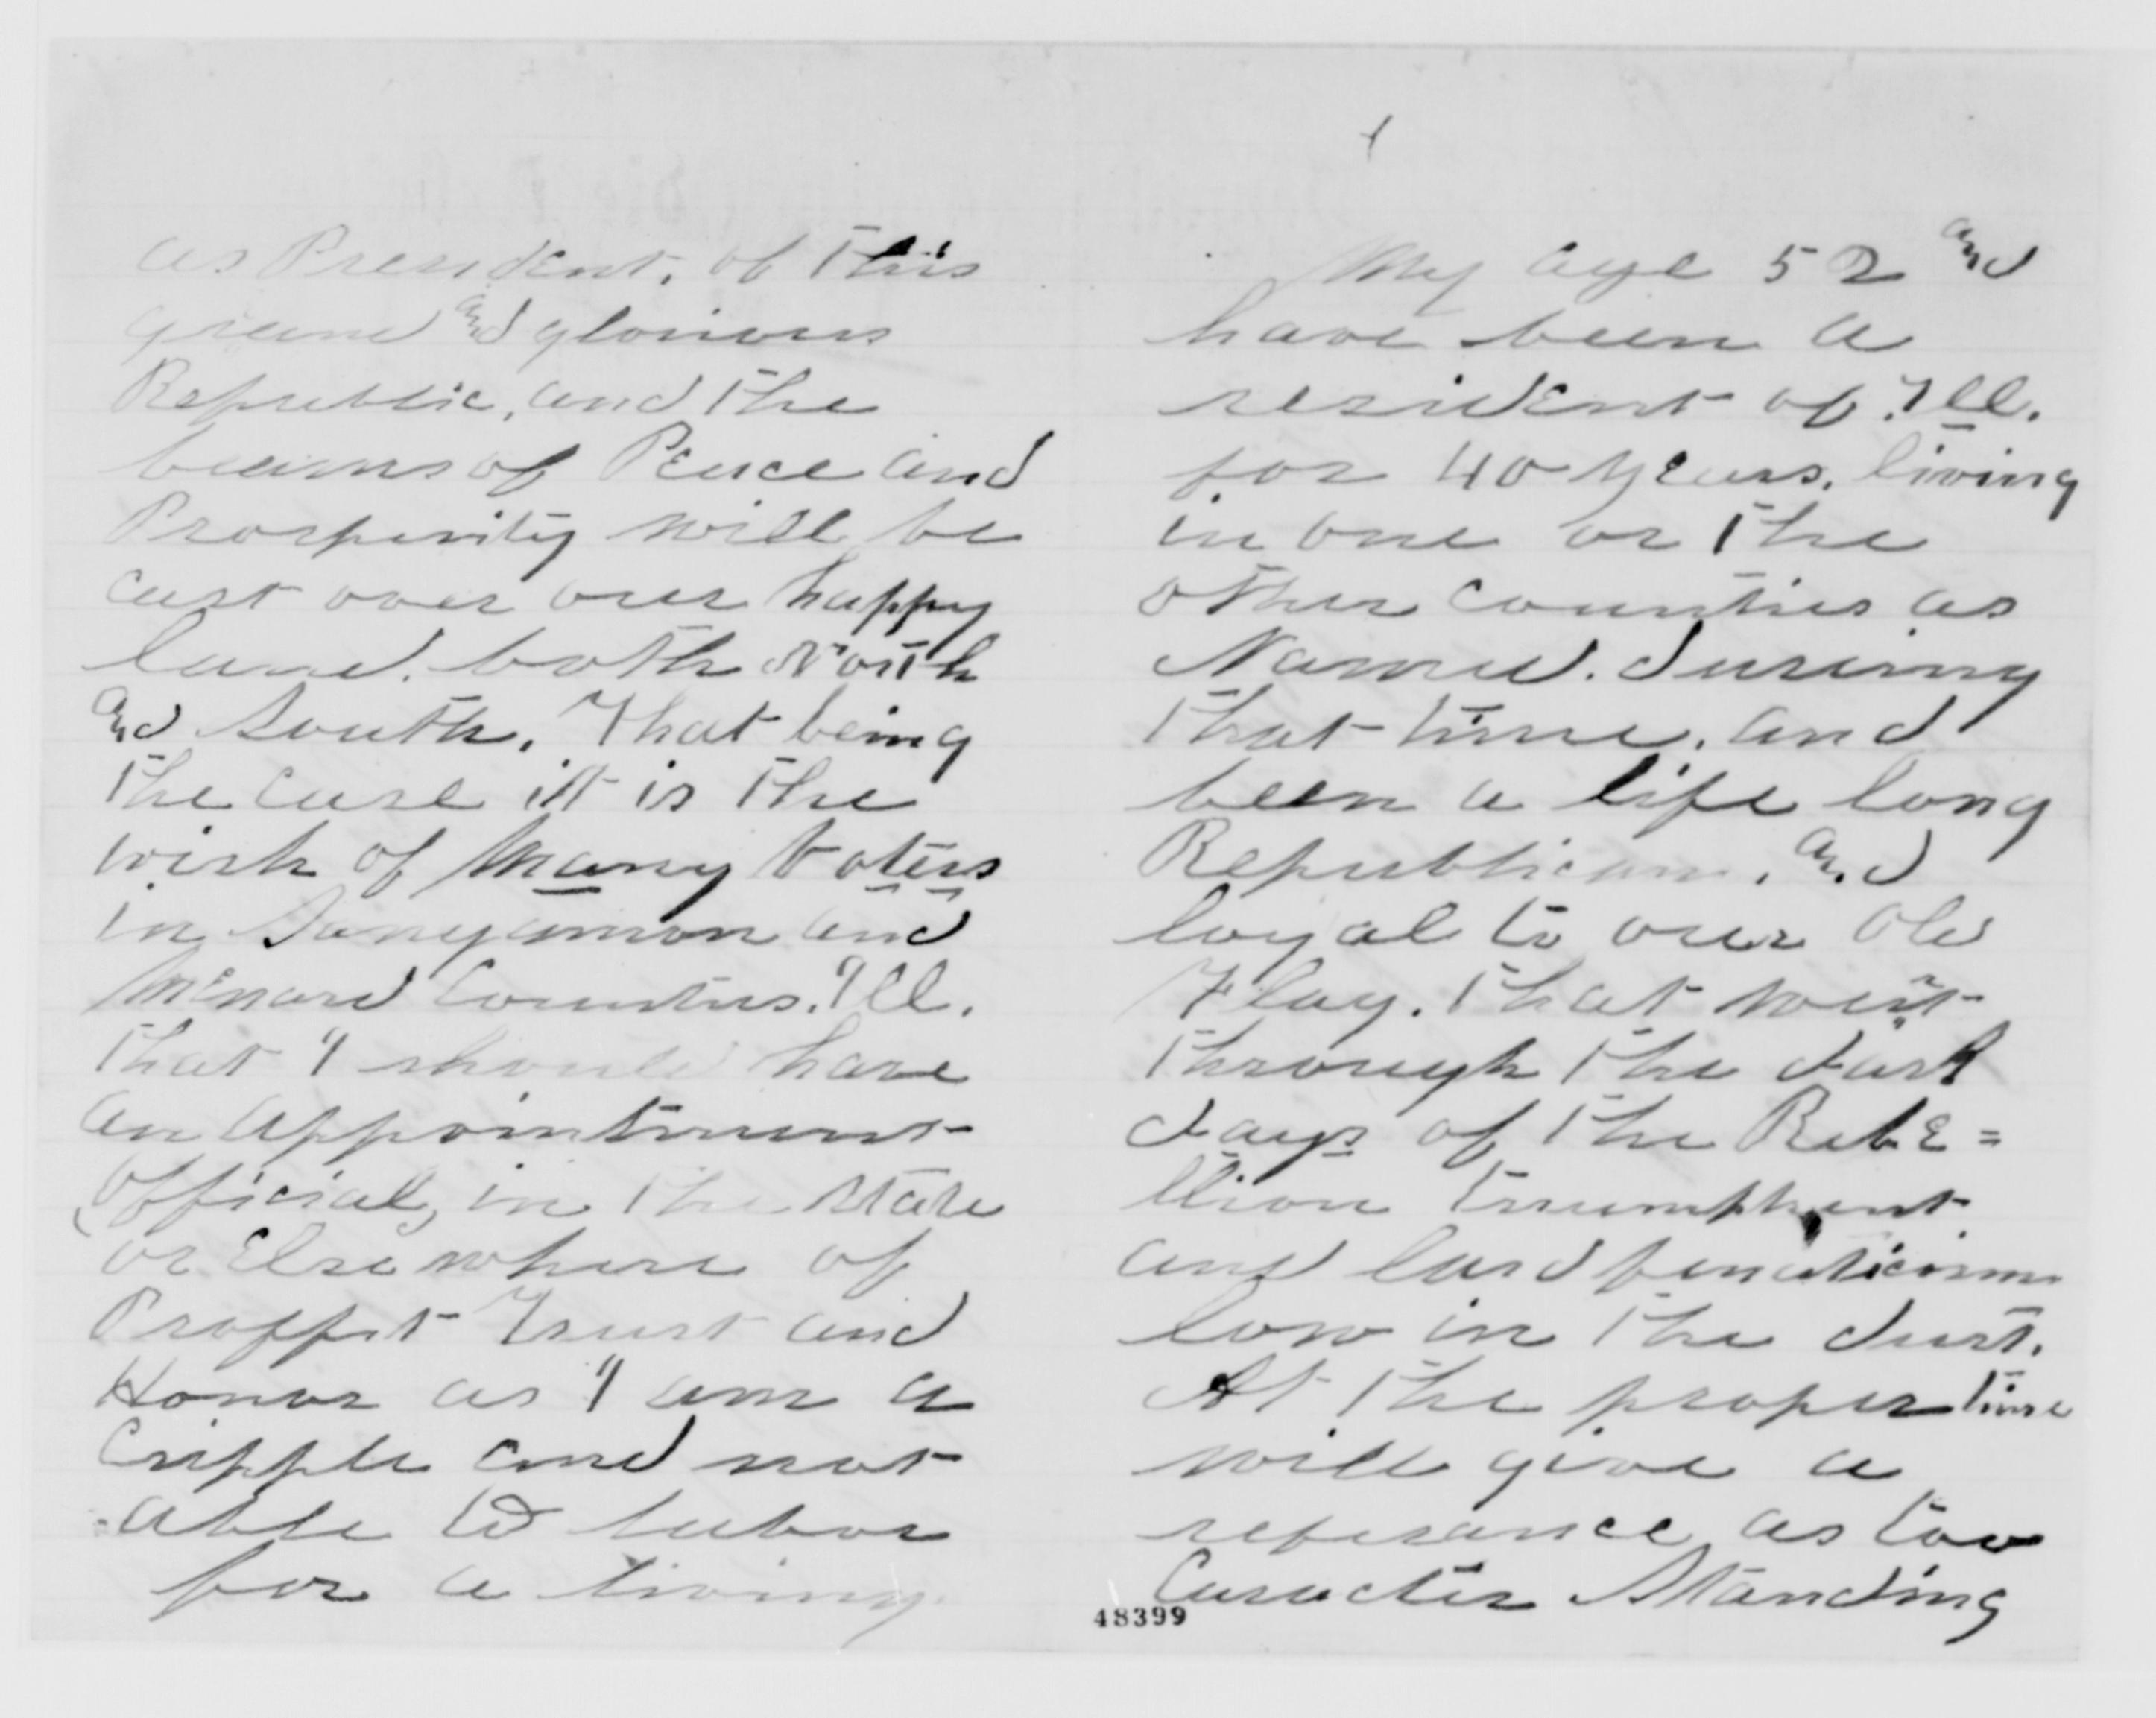 as President, of this
grand and glorious
Republic, and the
beams of Peace and
Prosperity will be
cast over our happy
land. both North
and South. That being
the case it is the
wish of many Voters
in Sangamon and
Menard Counties. Ill.
that I should have
an appointment
(official, in the State
or Elsewhere of
Proffit Trust and
Honor as I am a
Cripple and not
able to labor
for a living
My age 52 and
have been a
resident of Ill.
for 40 years. living
in one or the
other counties as
Named. during
that time. and
been a life long
Republican. and
loyal to our old
Flag. that went
through the dark
days of the Rebe=
llion triumphant
and laid fanaticism
low in the dust.
At the proper time
will give a
referance as too
Caracter Standing
48399